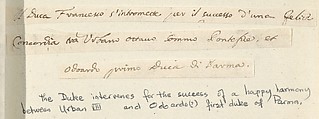 Il Duca Francesco s'intromette per il successo d'una felice
Concordia trà Urbano ottavo sommo Pontefice, et
Odoardo primo Duca di Parma.
The Duke intervenes for the success of a happy harmony
between Urban VIII and Odoardo(?) first duke of Parma.